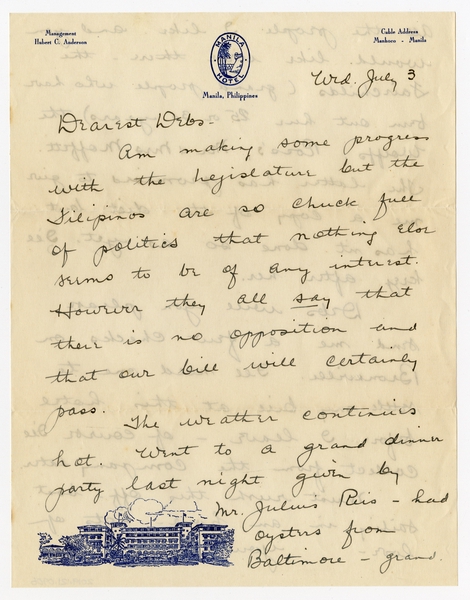 Management
Hubert C. Anderson
MANILA
HOTEL
Manila, Philippines
Cable Address
Manhoro - Manila
Wed. July 3
Dearest Debs-
Am making some progress
with the legislature but the
Filipinos are so chuck full
of politics that nothing else
seems to be of any interest.
However they all say that
there is no opposition and
that our bill will certainly
pass. The weather continues
hot. Went to a grand dinner
party last night given by
Mr. Julius Reis - had
oysters from
Baltimore - grand.